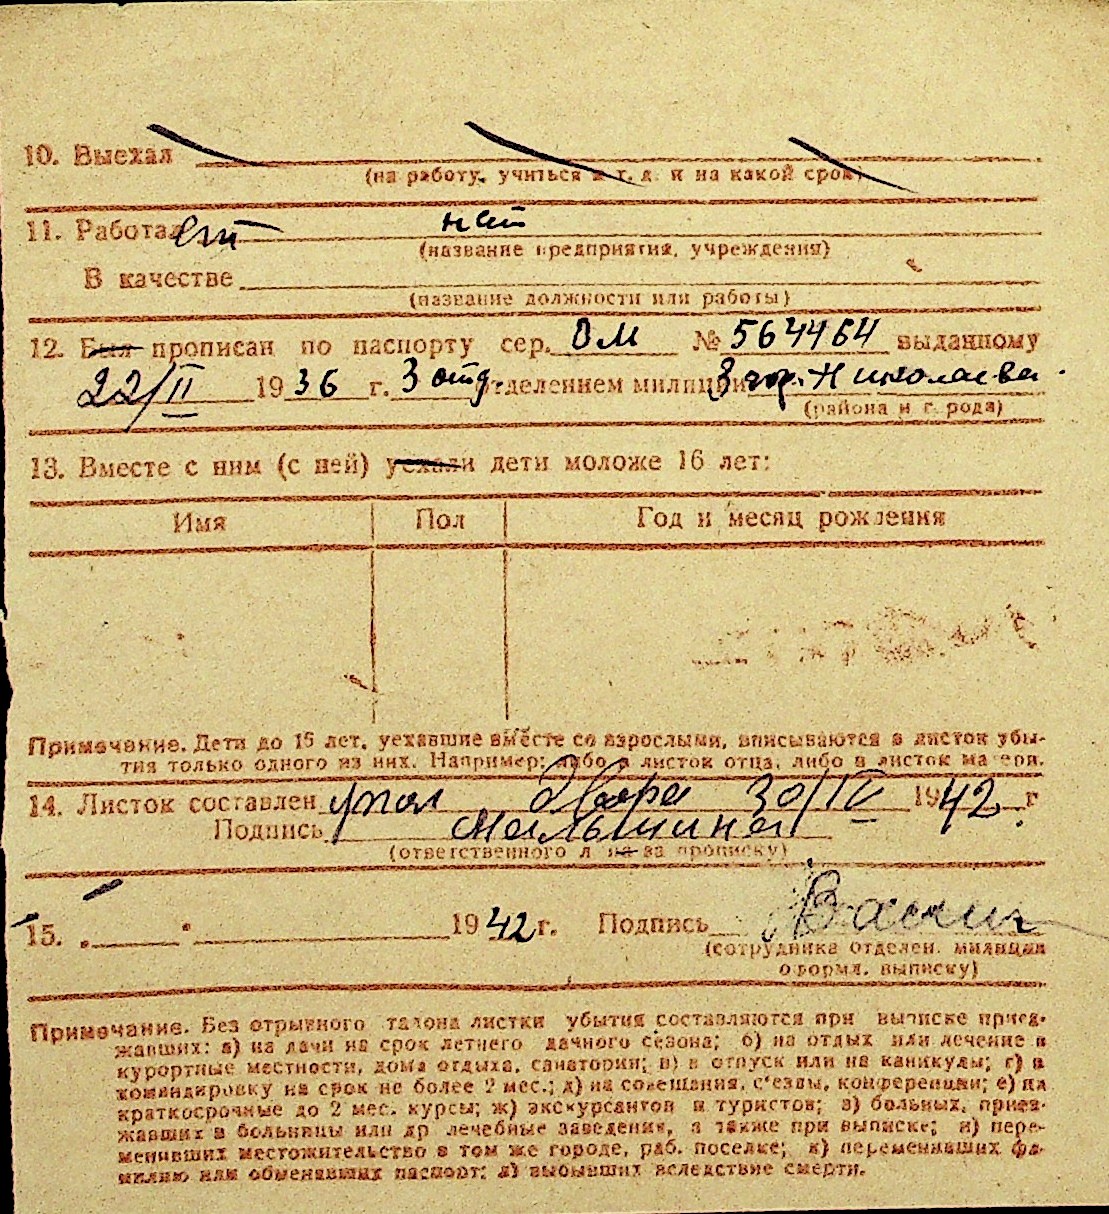 10. Выехал
(на работу, учиться и т. д. и на какой срок)
11. Работает нет
(название предприятия, учреждения)
В качестве
(название должности или работы)
12. Был прописан по паспорту сер. ОМ № 564464 выданному
22/II 1936 г. 3 отд. отделением милиции 3 гор. Николаева.
(района и города)
13. Вместе с ним (с ней) уехали дети моложе 16 лет:
Имя Пол Год и месяц рождения
Примечание. Дети до 15 лет, уехавшие вместе со взрослыми, вписываются в листок убы-
тия только одного из них. Например: либо в листок отца, либо в листок матери.
14. Листок составлен двора 30/IV 1942 г.
Подпись
(ответственного лица за прописку)
15. „ " 1942 г. Подпись
(сотрудника отделен. милиции
оформл. выписку)
Примечание. Без отрывного талона листки убытия составляются при выписке приез-
жавших: а) на дачи на срок летнего дачного сезона; б) на отдых или лечение в
курортные местности, дома отдыха, санатории; в) в отпуск или на каникулы; г) в
командировку на срок не более 2 мес.; д) на совещания, с'езды, конференции; е) на
краткосрочные до 2 мес. курсы; ж) экскурсантов и туристов; з) больных, приез-
жавших в больницы или др лечебные заведения, а также при выписке; и) пере-
менивших местожительство в том же городе, раб. поселке; к) переменивших фа-
милию или обменявших паспорт; л) выбывших вследствие смерти.